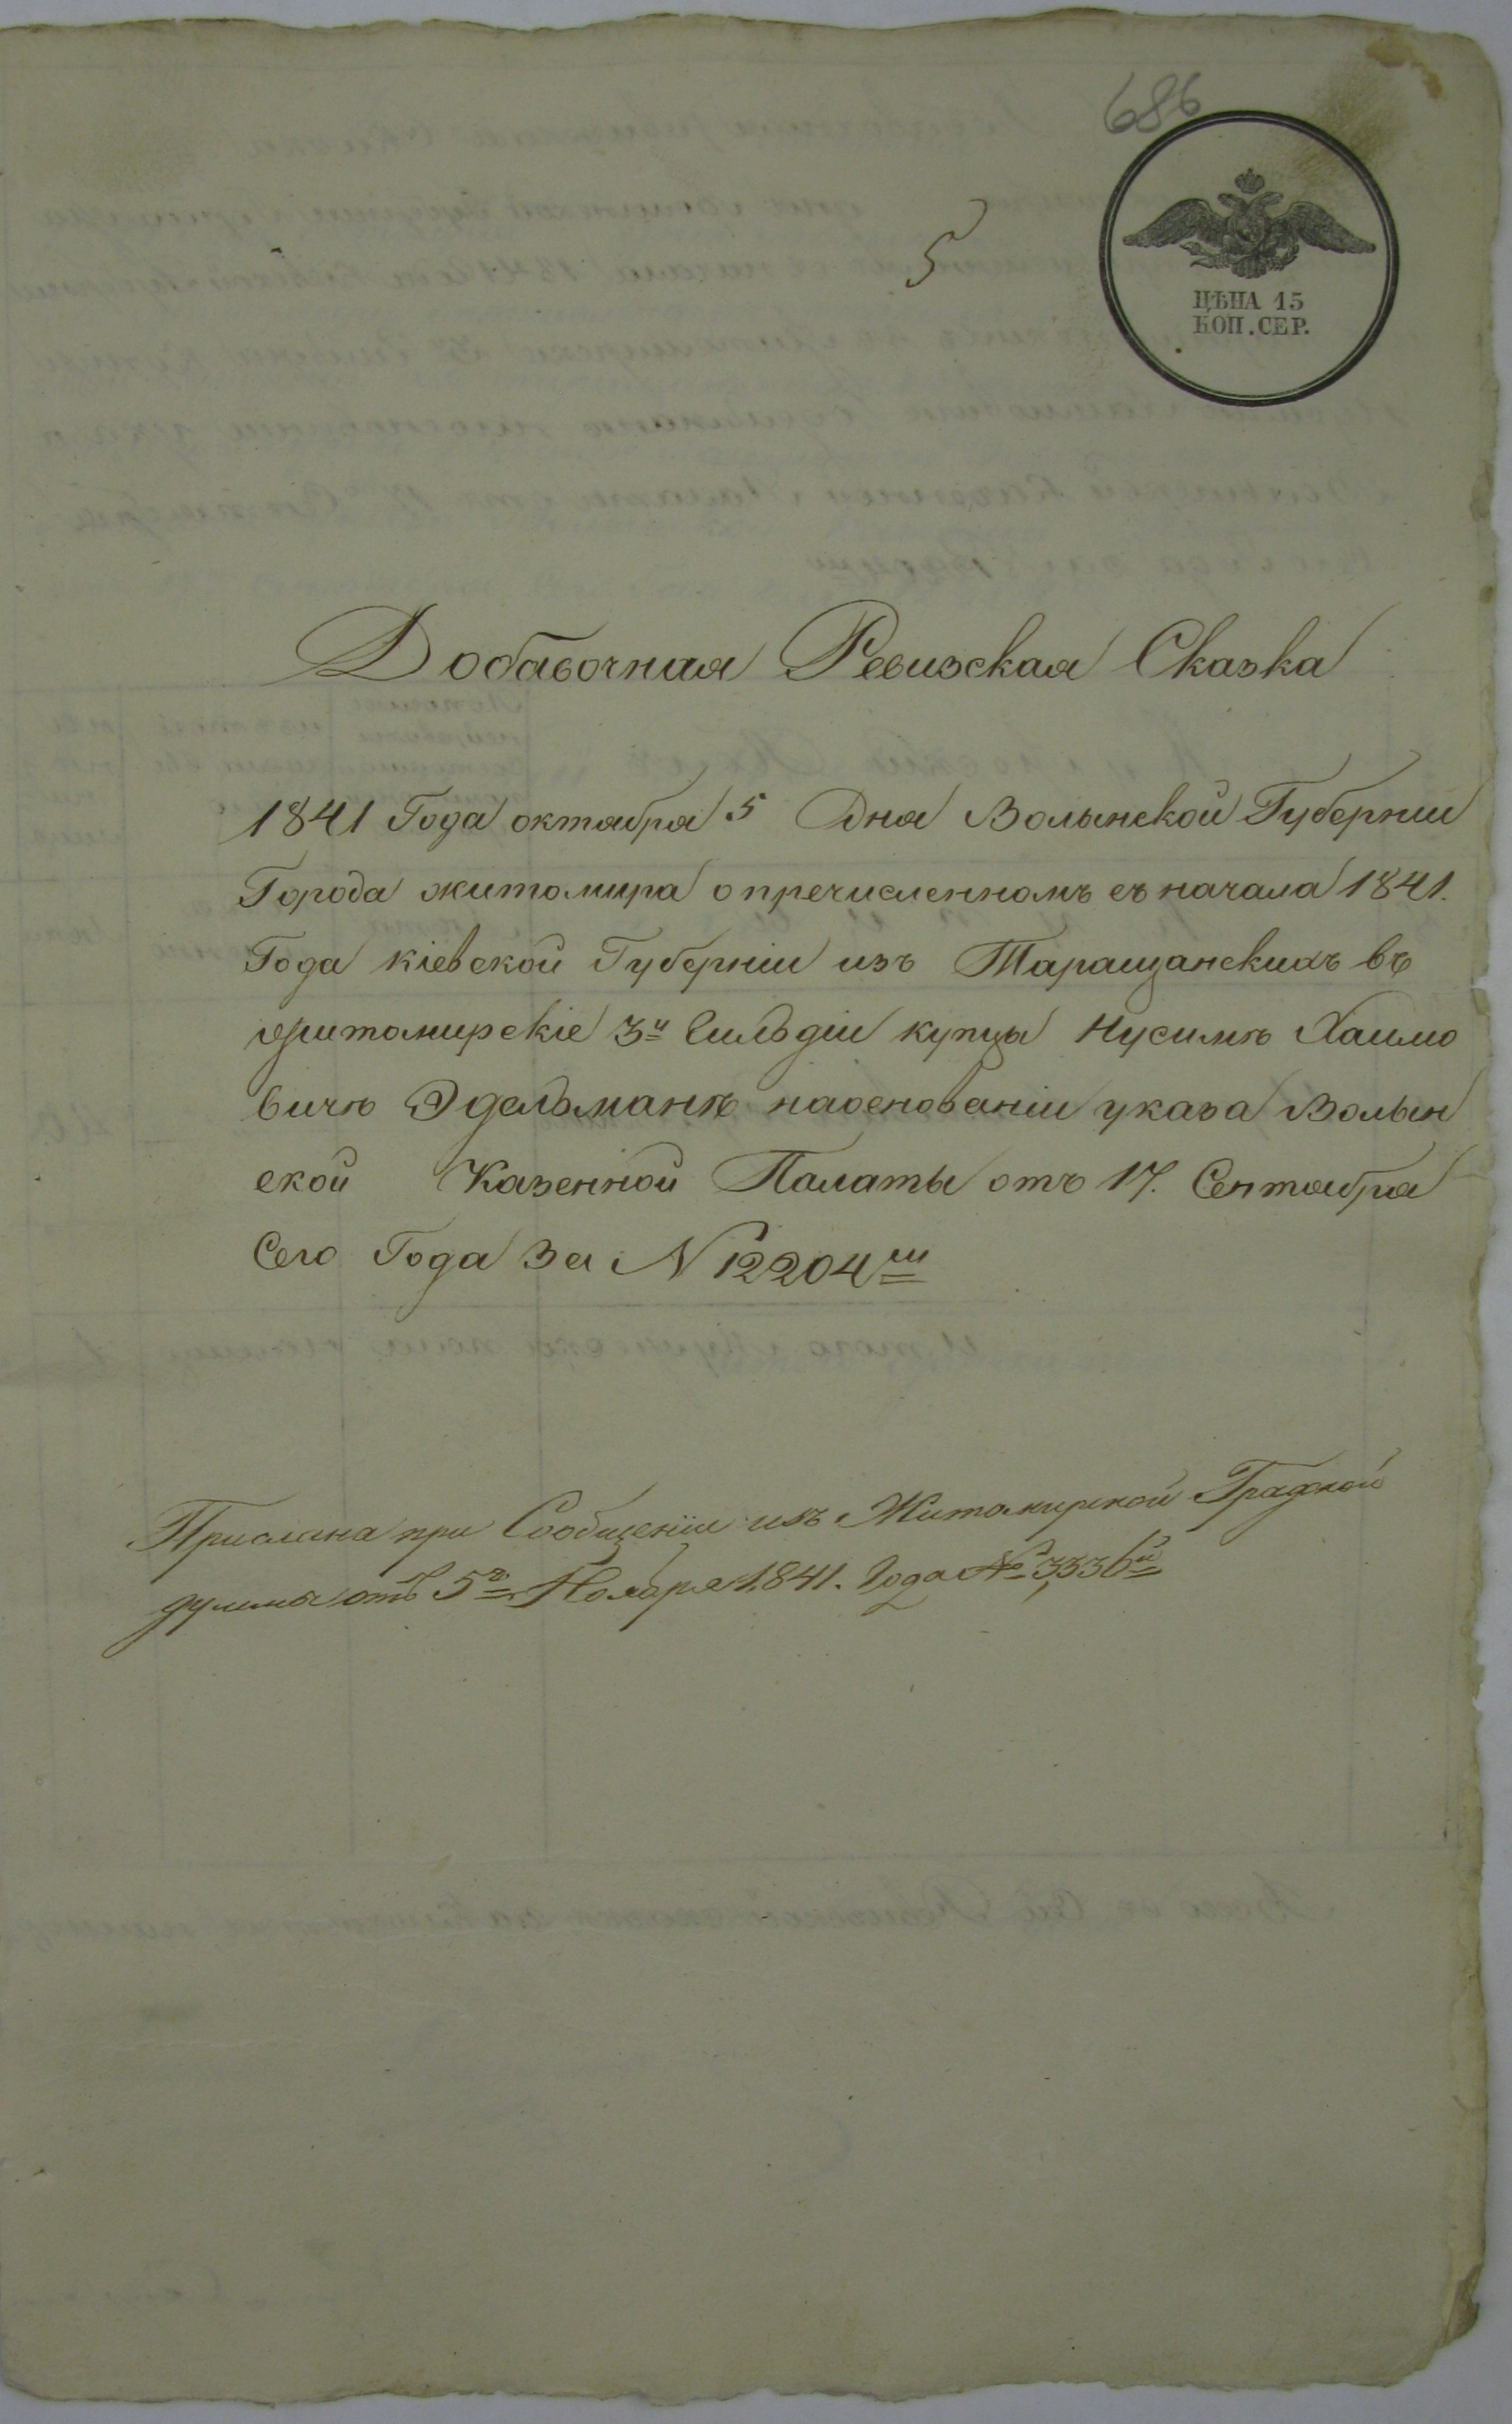 686
5
ЦѢНА 15
КОП. СЕР.
Добавочная Ревизская Сказка
1841 Года октября 5 Дня Волынской Губернии
Города житомира о пречисленномъ съ начала 1841.
Года кіевской Губерніи изъ Таращанскихъ въ
житомирскіе 3й Гильдіи купцы Нусимъ Хаимо
вичъ Эдельманъ наоснованіи указа Волын
ской Казенной Палаты отъ 17. Сентября
Сего Года За N 12204м
Прислана при Сообщеніи изъ Житомирской Градской
думы отъ 5го Ноября 1841. Года № 3336й